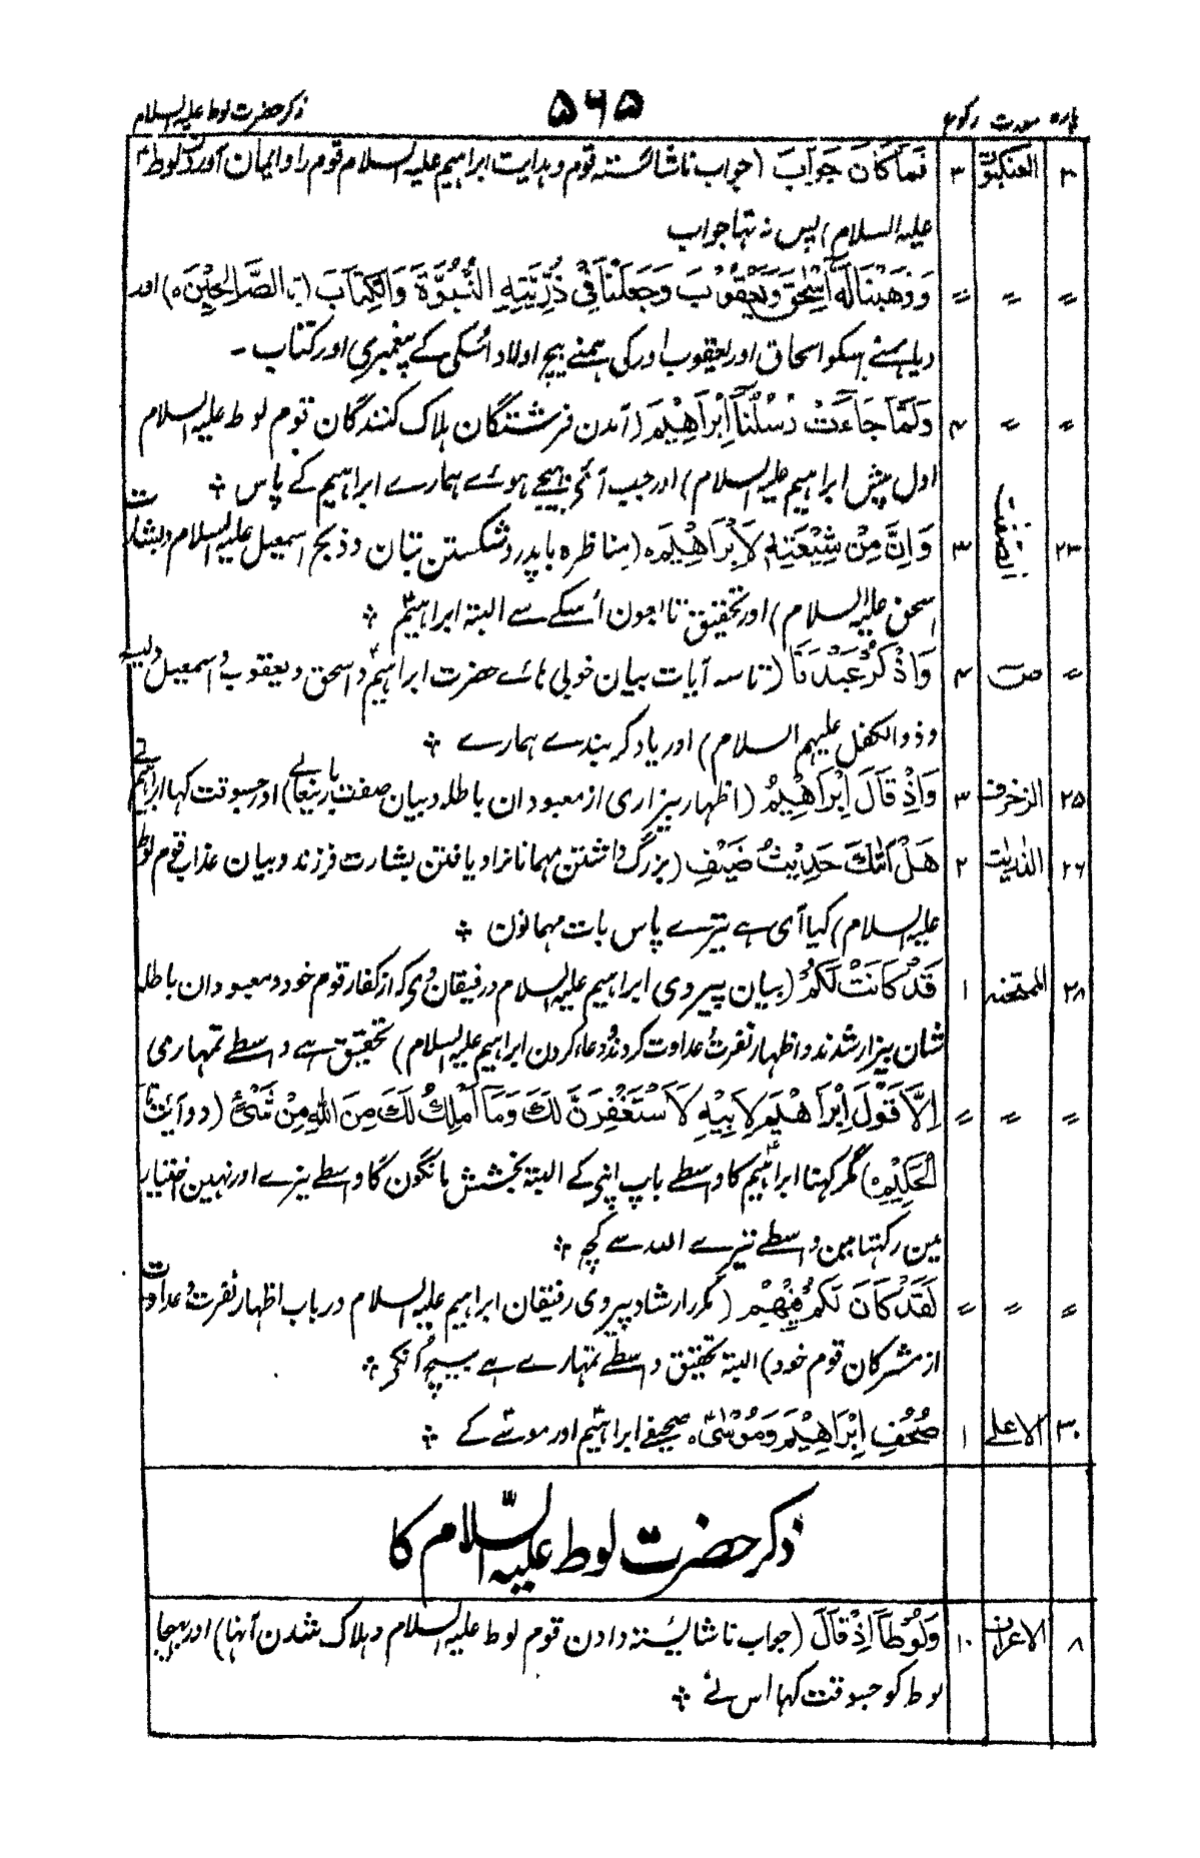 پارہ سورت رکوع ۵۶۵ ذکر حضرت لوط علیہ السلام
۲۰ العنکبوت ۳ فَمَا كَانَ جَوَابَ (جواب ناشائستہ قوم و ہدایت ابراہیم علیہ السلام قوم را و ایمان آوردن لوط
علیہ السلام) پس نہ تہا جواب
〃 〃 〃 وَوَهَبْنَا لَهٗٓ اِسْحٰقَ وَيَعْقُوْبَ وَجَعَلْنَا فِيْ ذُرِّيَّتِهِ النُّبُوَّةَ وَالْكِتَابَ (تا الصَّالِحِيْنَ ه) اور
دیا ہمنے اسکو اسحاق اور یعقوب اور کی ہمنے بیچ اولاد اسکی کے پیغمبری اور کتاب ۔
〃 〃 ۴ وَلَمَّا جَاءَتْ رُسُلُنَآ اِبْرَاهِيْمَ (آمدن فرشتگان ہلاک کنندگان قوم لوط علیہ السلام
اول پیش ابراہیم علیہ السلام) اور جب آئے بہیجے ہوئے ہمارے ابراہیم کے پاس ؞
۲۳ الصّٰفّٰت ۳ وَاِنَّ مِنْ شِيْعَتِهٖ لَاِبْرَاهِيْمَ ه (مناظرہ با پدر و شکستن بتان و ذبح اسمعیل علیہ السلام و بشارت
اسحق علیہ السلام) اور تحقیق تابعون اسکے سے البتہ ابراہیم ؞
〃 ص ۴ وَاذْكُرْ عِبْدَنَا (تا سہ آیات بیان خوبی ہائے حضرت ابراہیم و اسحق و یعقوب و اسمعیل و لیسع
و ذوالکفل علیہم السلام) اور یاد کر بندے ہمارے ؞
۲۵ الزخرف ۳ وَاِذْ قَالَ اِبْرَاهِيْمُ (اظہار بیزاری از معبودان باطلہ و بیان صفت باریتعالے) اور جسوقت کہا ابراہیم نے
۲۶ الذٰریٰت ۲ هَلْ اَتٰكَ حَدِيْثُ ضَيْفِ (بزرگ داشتن مہمانا نرا و یافتن بشارت فرزند و بیان عذاب قوم لوط
علیہ السلام) کیا آئی ہے تیرے پاس بات مہمانون ؞
۲۸ الممتحنہ ۱ قَدْ كَانَتْ لَكُمْ (بیان پیروی ابراہیم علیہ السلام و رفیقان وی کہ از کفار قوم خود و معبودان باطلہ
شان بیزار شدند و اظہار نفرت و عداوت کردند و دعا کردن ابراہیم علیہ السلام) تحقیق ہے واسطے تمہاری
〃 〃 〃 اِلَّا قَوْلَ اِبْرَاهِيْمَ لِاَبِيْهِ لَاَسْتَغْفِرَنَّ لَكَ وَمَا اَمْلِكُ لَكَ مِنَ اللهِ مِنْ شَيْءٍ (دو آیت تا
الْحَكِيْمُ ه) مگر کہنا ابراہیم کا واسطے باپ اپنے کے البتہ بخشش مانگون گا واسطے تیرے اور نہین اختیار
مین رکہتا مین واسطے تیرے اللہ سے کچھ ؞
〃 〃 〃 لَقَدْ كَانَ لَكُمْ فِيْهِمْ (مکرر ارشاد پیروی رفیقان ابراہیم علیہ السلام در باب اظہار نفرت و عداوت
از مشرکان قوم خود) البتہ تحقیق واسطے تمہارے ہے بیچ انکے ؞
۳۰ الاعلے ۱ صُحُفِ اِبْرَاهِيْمَ وَمُوْسٰى ه صحیفے ابراہیم اور موسے کے ؞
ذکر حضرت لوط علیہ السّلام کا
۸ الاعراف ۱۰ وَلُوْطًا اِذْ قَالَ (جواب ناشائستہ دادن قوم لوط علیہ السلام و ہلاک شدن آنہا) اور بہیجا
لوط کو جسوقت کہا اس نے ؞